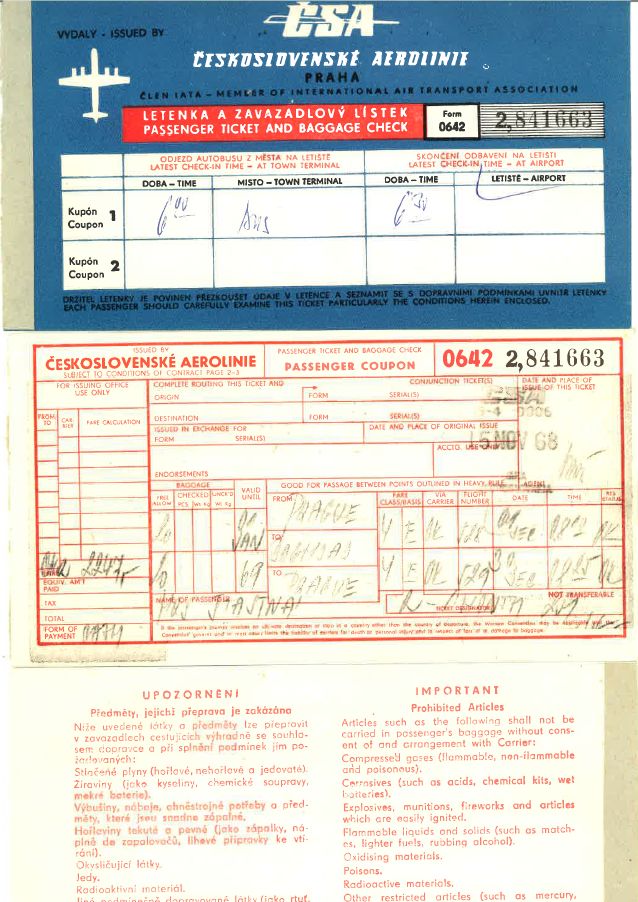 ČSA
VYDALY - ISSUED BY
ČESKOSLOVENSKÉ AEROLINIE
PRAHA
ČLEN IATA – MEMBER OF INTERNATIONAL AIR TRANSPORT ASSOCIATION
LETENKA A ZAVAZADLOVÝ LÍSTEK
PASSENGER TICKET AND BAGGAGE CHECK
Form
0642
2,841663
ODJEZD AUTOBUSU Z MĚSTA NA LETIŠTĚ
LATEST CHECK-IN TIME – AT TOWN TERMINAL
SKONČENÍ ODBAVENÍ NA LETIŠTI
LATEST CHECK-IN TIME – AT AIRPORT
DOBA – TIME
MÍSTO – TOWN TERMINAL
DOBA – TIME
LETIŠTĚ – AIRPORT
Kupón
Coupon 1
Kupón
Coupon 2
DRŽITEL LETENKY JE POVINEN PŘEZKOUŠET ÚDAJE V LETENCE A SEZNÁMIT SE S DOPRAVNÍMI PODMÍNKAMI UVNITŘ LETENKY
EACH PASSENGER SHOULD CAREFULLY EXAMINE THIS TICKET PARTICULARLY THE CONDITIONS HEREIN ENCLOSED.
ISSUED BY
ČESKOSLOVENSKÉ AEROLINIE
SUBJECT TO CONDITIONS OF CONTRACT PAGE 2-3
PASSENGER TICKET AND BAGGAGE CHECK
PASSENGER COUPON
0642 2,841663
FOR ISSUING OFFICE
USE ONLY
COMPLETE ROUTING THIS TICKET AND
CONJUNCTION TICKET(S)
DATE AND PLACE OF
ISSUE OF THIS TICKET
ORIGIN
FORM
SERIAL(S)
DESTINATION
FORM
SERIAL(S)
ISSUED IN EXCHANGE FOR
DATE AND PLACE OF ORIGINAL ISSUE
FORM
SERIAL(S)
15 NOV 68
ENDORSEMENTS
FROM
TO
CAR-
RIER
FARE CALCULATION
BAGGAGE
FREE
ALLOW
CHECKED
PCS
Wt. Kg
UNCK'D
Wt. Kg
VALID
UNTIL
GOOD FOR PASSAGE BETWEEN POINTS OUTLINED IN HEAVY RULE
AGENT
FARE
CLASS/BASIS
VIA
CARRIER
FLIGHT
NUMBER
DATE
TIME
RES
STATUS
FROM
PRAGUE
JAN
TO
69
TO
PRAGUE
OK
DEC
EQUIV. AM'T
PAID
TAX
TOTAL
FORM OF
PAYMENT
NAME OF PASSENGER
NOT TRANSFERABLE
TICKET DESIGNATOR
UPOZORNĚNÍ
Předměty, jejichž přeprava je zakázána
Níže uvedené látky a předměty lze přepravit
v zavazadlech cestujících výhradně se souhla-
sem dopravce a při splnění podmínek jím po-
žadovaných:
Stlačené plyny (hořlavé, nehořlavé a jedovaté).
Žíraviny (jako kyseliny, chemické soupravy,
mokré baterie).
Výbušiny, náboje, ohněstrojné potřeby a před-
měty, které jsou snadno zápalné.
Hořlaviny tekuté a pevné (jako zápalky, ná-
plně do zapalovačů, lihové přípravky ke vtí-
rání).
Okysličující látky.
Jedy.
Radioaktivní materiál.
Jiné podmínečně dopravované látky (jako rtuť,
IMPORTANT
Prohibited Articles
Articles such as the following shall not be
carried in passenger's baggage without cons-
ent of and arrangement with Carrier:
Compressed gases (flammable, non-flammable
and poisonous).
Corrosives (such as acids, chemical kits, wet
batteries).
Explosives, munitions, fireworks and articles
which are easily ignited.
Flammable liquids and solids (such as match-
es, lighter fuels, rubbing alcohol).
Oxidising materials.
Poisons.
Radioactive materials.
Other restricted articles (such as mercury,